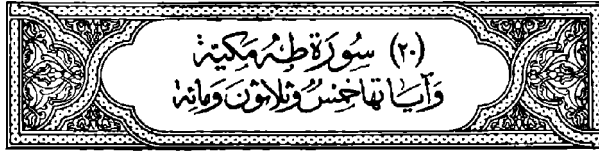 (٢٠) سُورَة طه مَكيَّة
وَآيَاتهَا خمسٌ وَثلاثونَ وَمائة